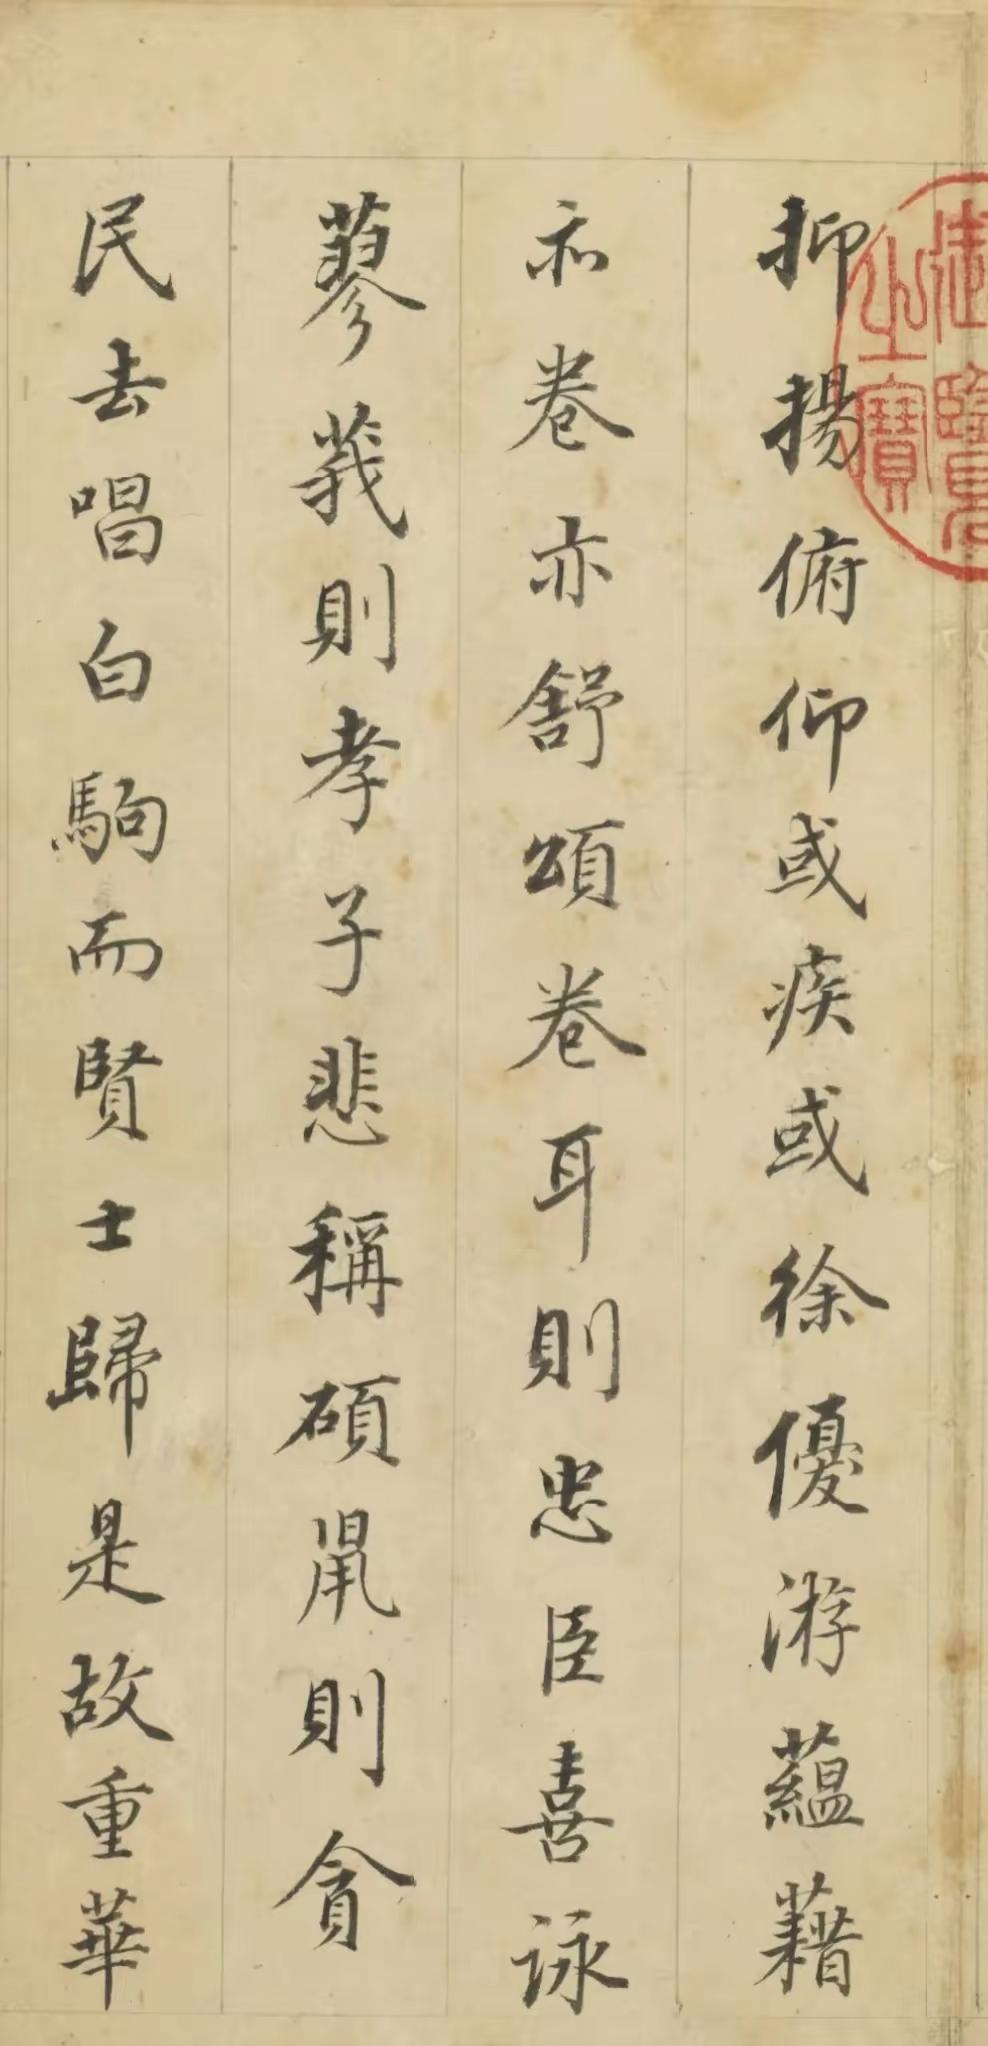 御覽之寶
抑揚俯仰或疾或徐優游蘊藉
亦卷亦舒頌卷耳則忠臣喜詠
蓼莪則孝子悲稱碩鼠則貪
民去唱白駒而賢士歸是故重華